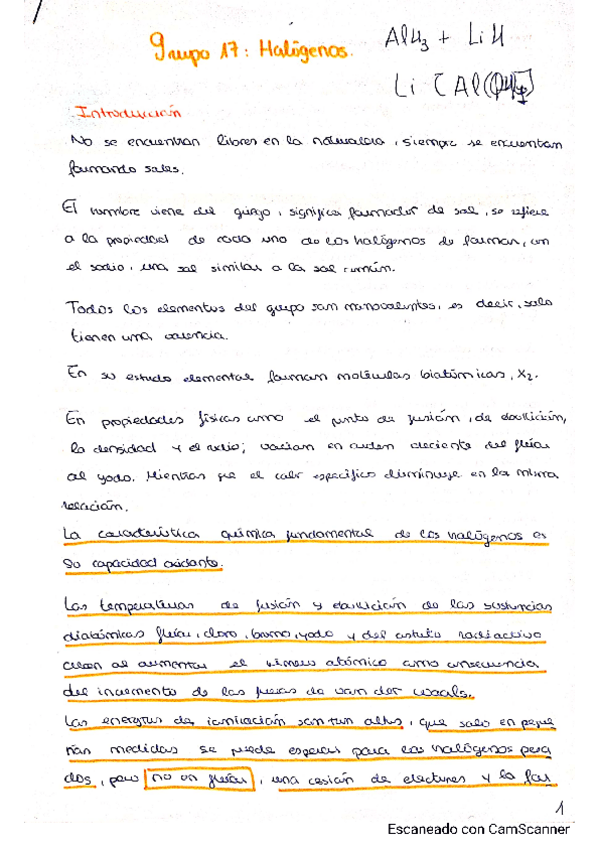 Grupo 17: Halógenos.
AlH3 + LiH
Li [Al
Introducción
No se encuentran libres en la naturaleza, siempre se encuentran
formando sales.
El nombre viene del griego, significa formador de sal, se refiere
a la propiedad de cada uno de los halógenos de formar, con
el sodio, una sal similar a la sal común.
Todos los elementos del grupo son monovalentes, es decir, solo
tienen una valencia.
En su estado elemental forman moléculas biatómicas, X2.
En propiedades físicas como el punto de fusión, de ebullición,
la densidad y el radio; varían en orden creciente del flúor
al yodo. Mientras que el calor específico disminuye en la misma
relación.
La característica química fundamental de los halógenos es
su capacidad oxidante.
Las temperaturas de fusión y ebullición de las sustancias
diatómicas flúor, cloro, bromo, yodo y del astato radiactivo
crecen al aumentar el número atómico como consecuencia
del incremento de las fuerzas de van der waals.
Las energías de ionización son tan altas, que solo en peque
ñas medidas se puede esperar para los halógenos pesa
dos, pero no en flúor, una cesión de electrones y la for
1
Escaneado con CamScanner